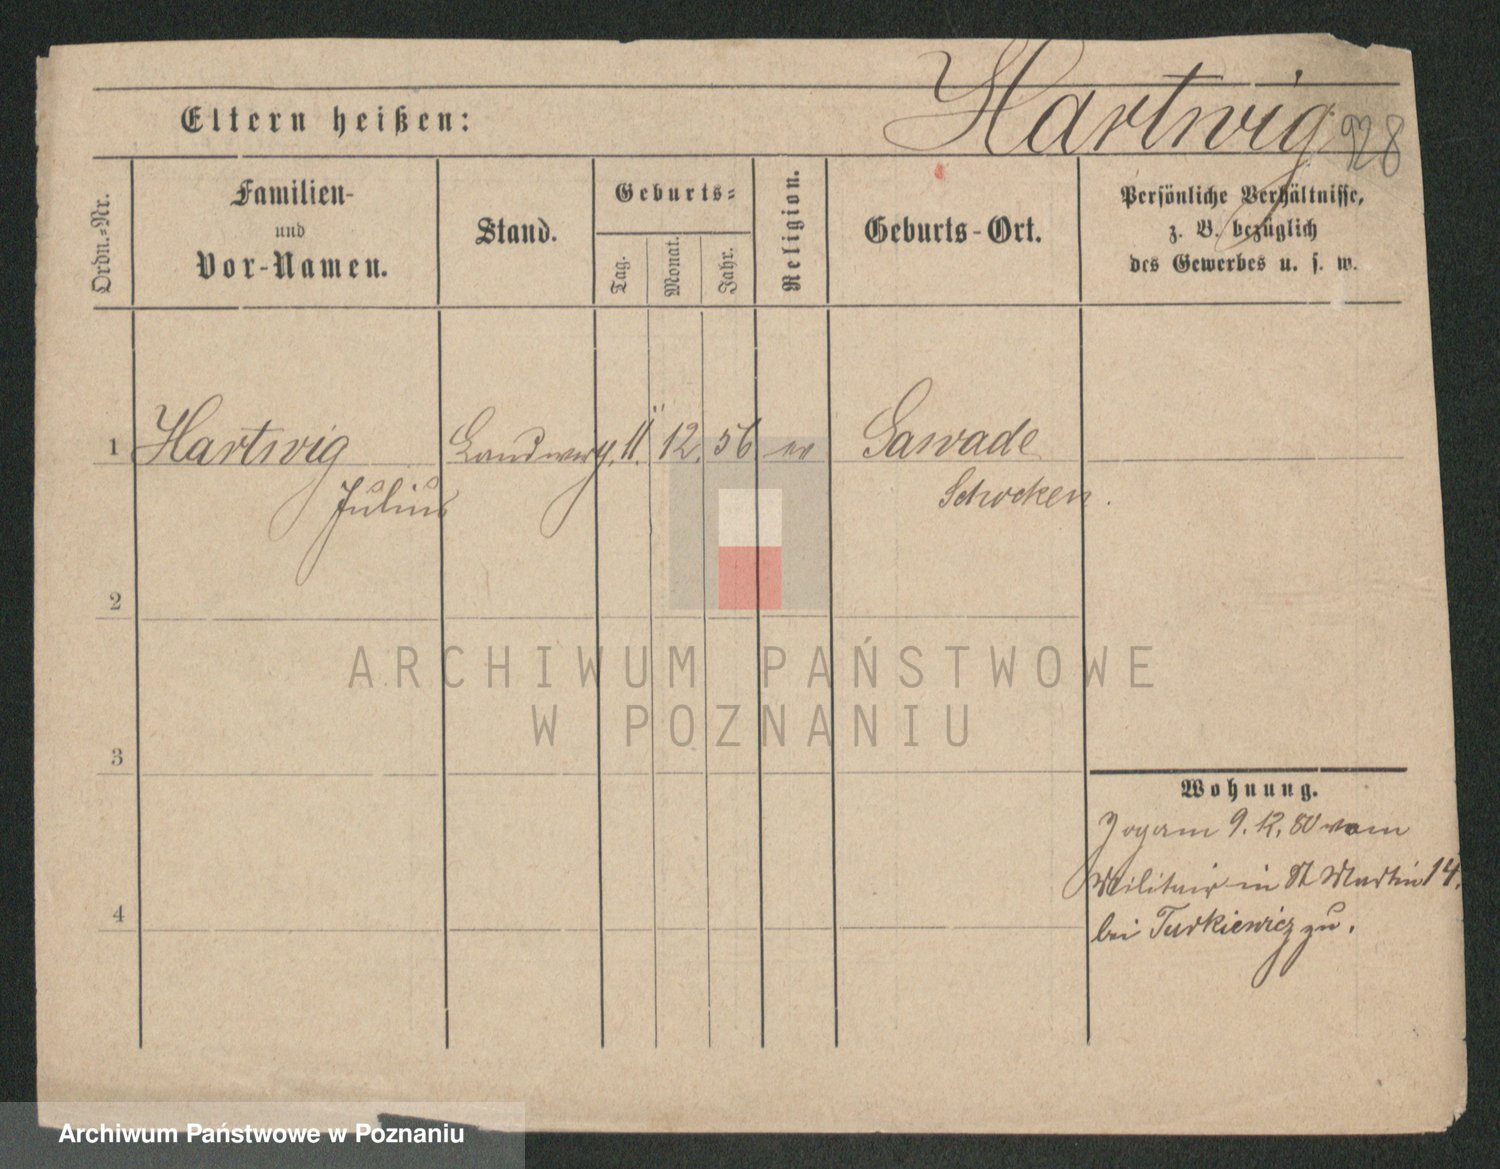 Hartwig
928
Eltern heißen:
Ordn.-Nr.
Familien-
und
Vor-Namen.
Stand.
Geburts-
Tag.
Monat.
Jahr.
Religion.
Geburts-Ort.
Persönliche Verhältnisse,
z. B. bezüglich
des Gewerbes u. s. w.
1 Hartwig 11. 12. 56 ev Sawade
Julius Schocken.
2
3
4
Wohnung.
Zog am 9. 12. 80 vom
Militair in St Martin 14.
bei Turkiewicz zu.
ARCHIWUM PAŃSTWOWE
W POZNANIU
Archiwum Państwowe w Poznaniu